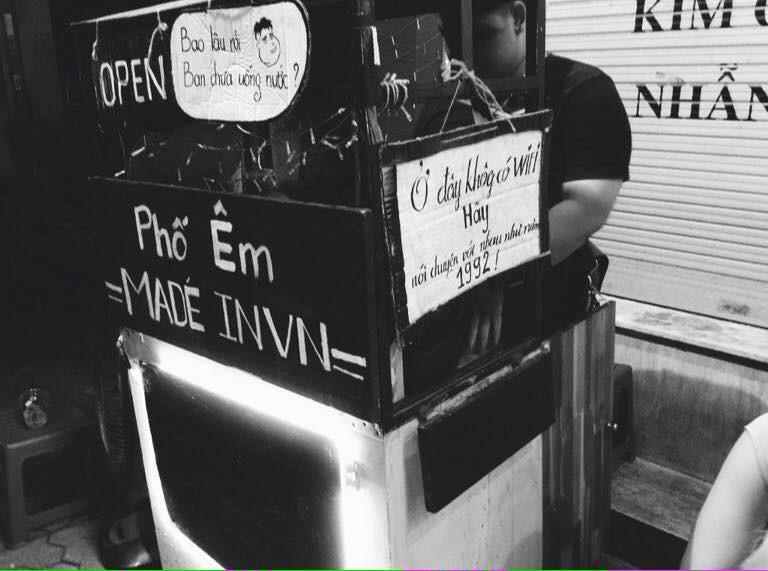 OPEN
Bao lâu rồi
Bạn chưa uống nước ?
Phố Êm
=MADE IN VN=
Ở đây không có WiFi
Hãy
nói chuyện với nhau như năm
1992 !
KIM
NHẪN